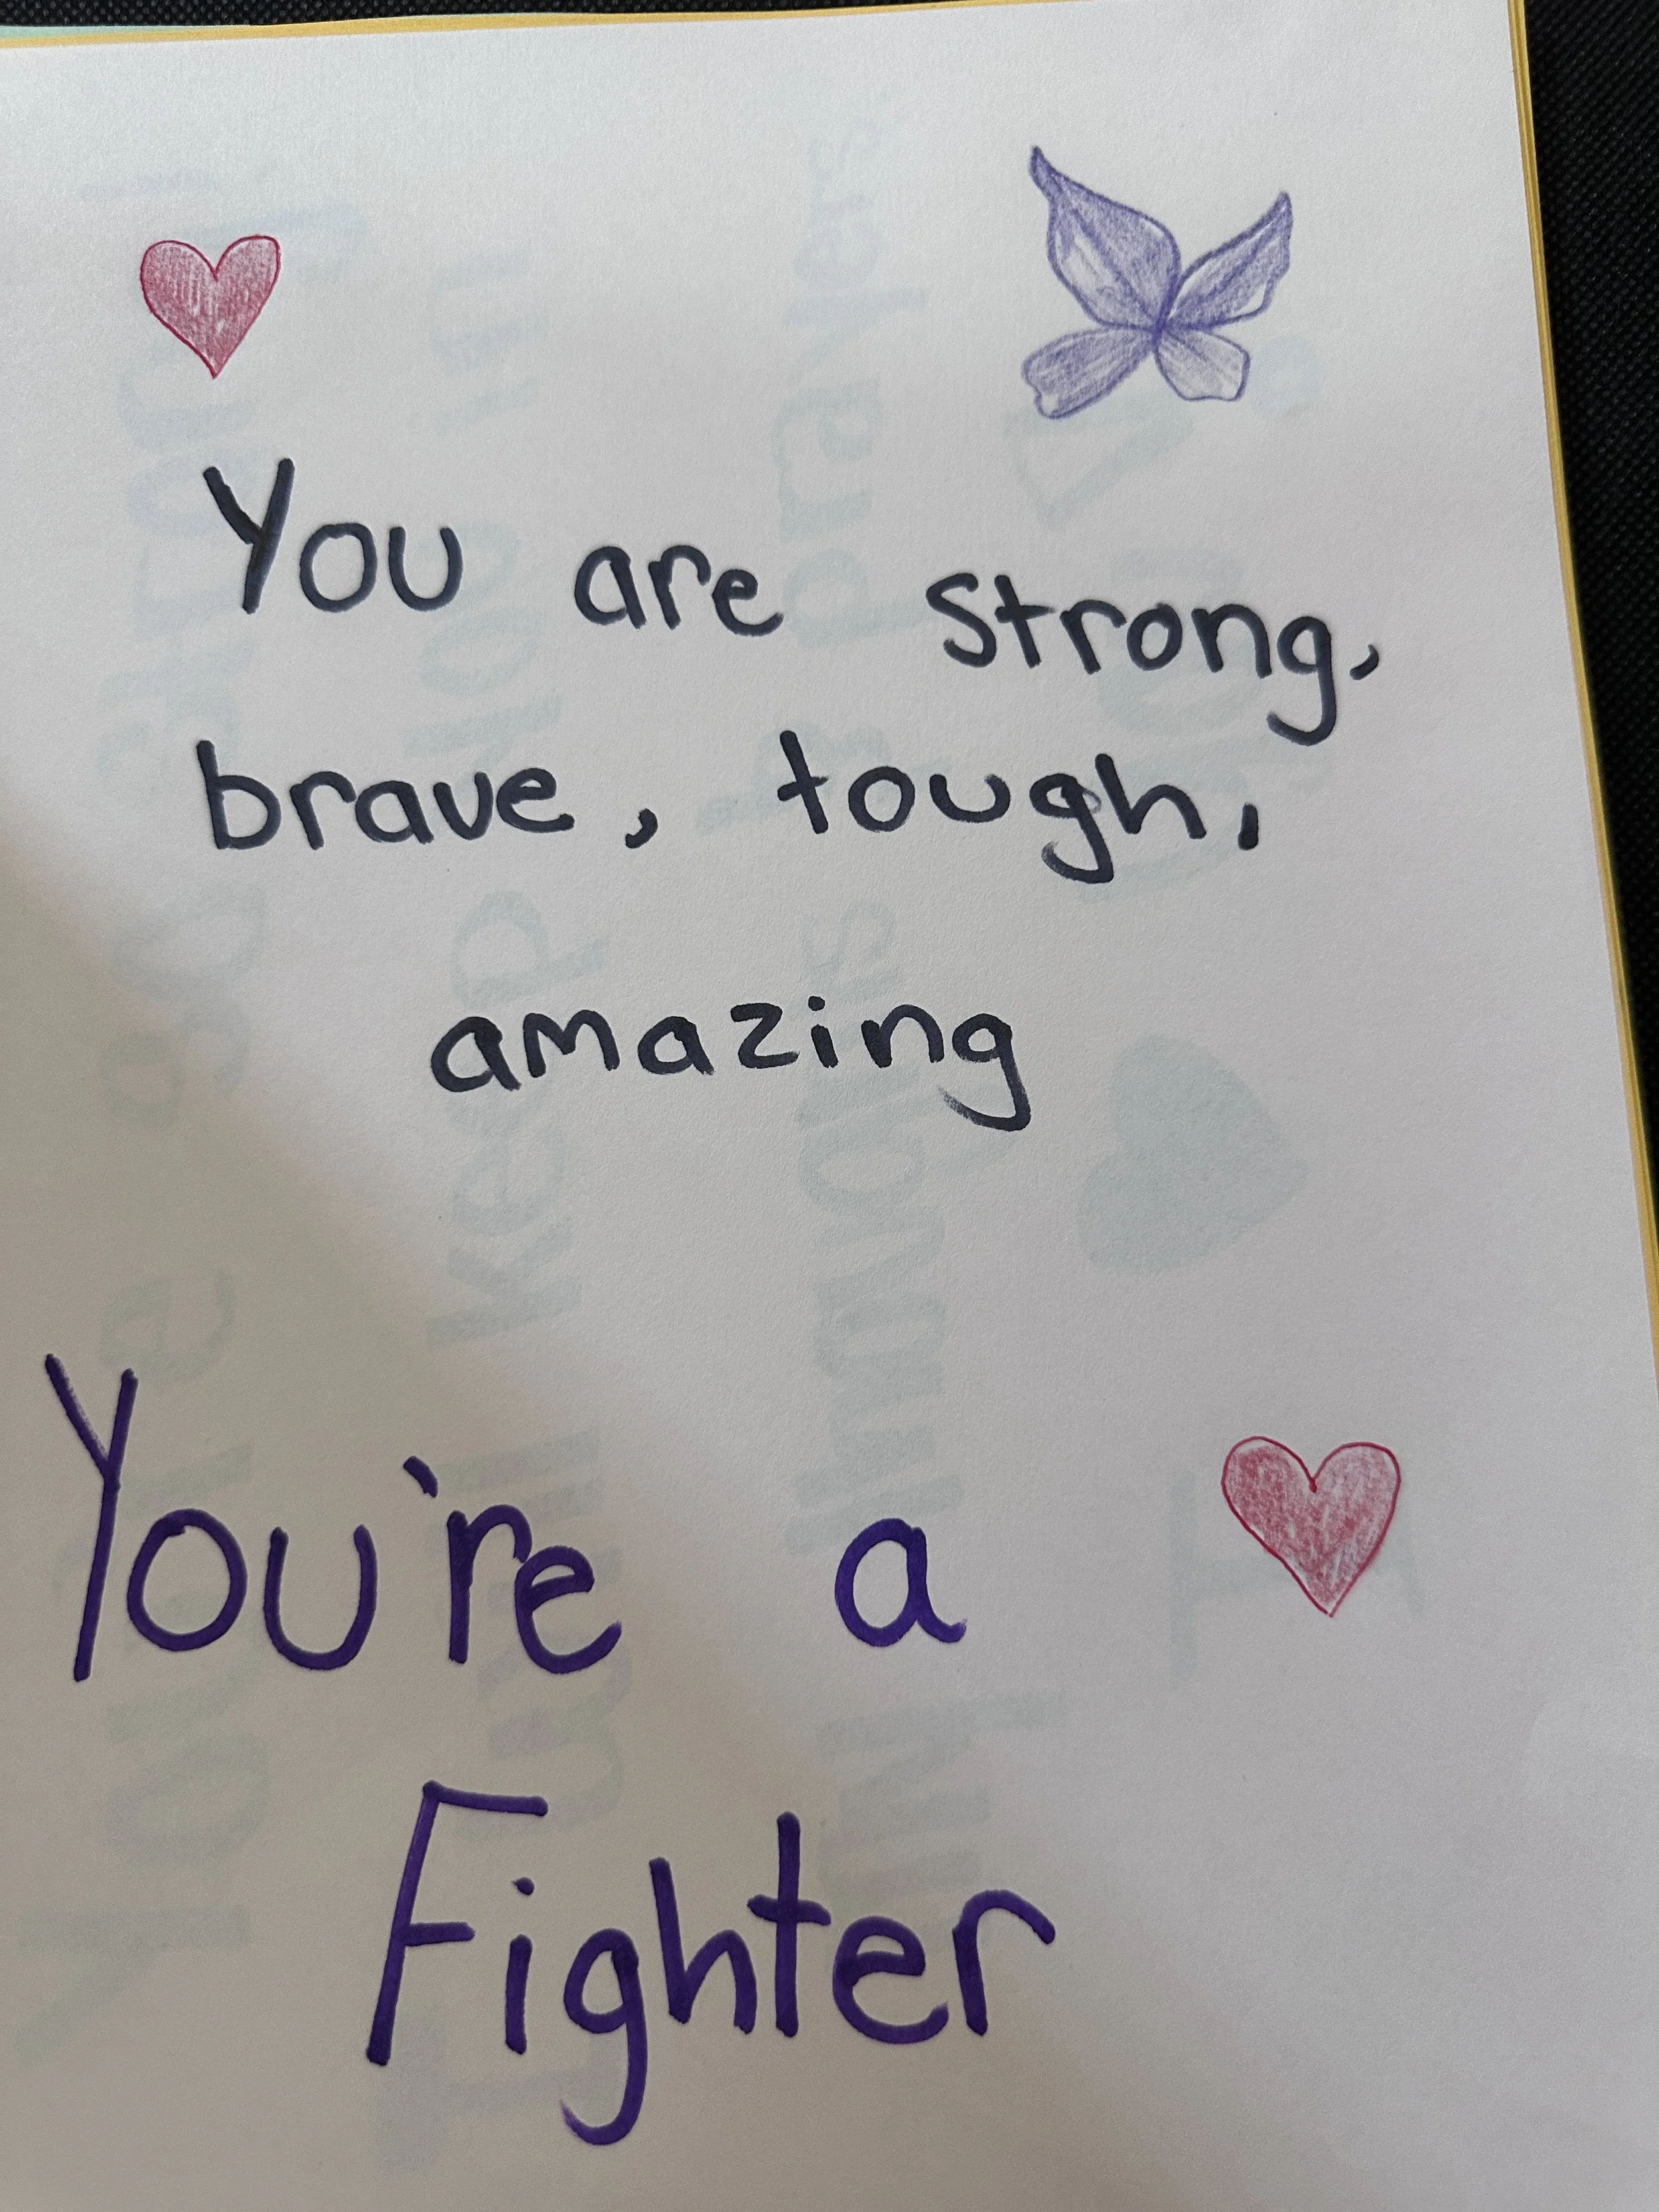 You are strong,
brave, tough,
amazing
You're a
Fighter